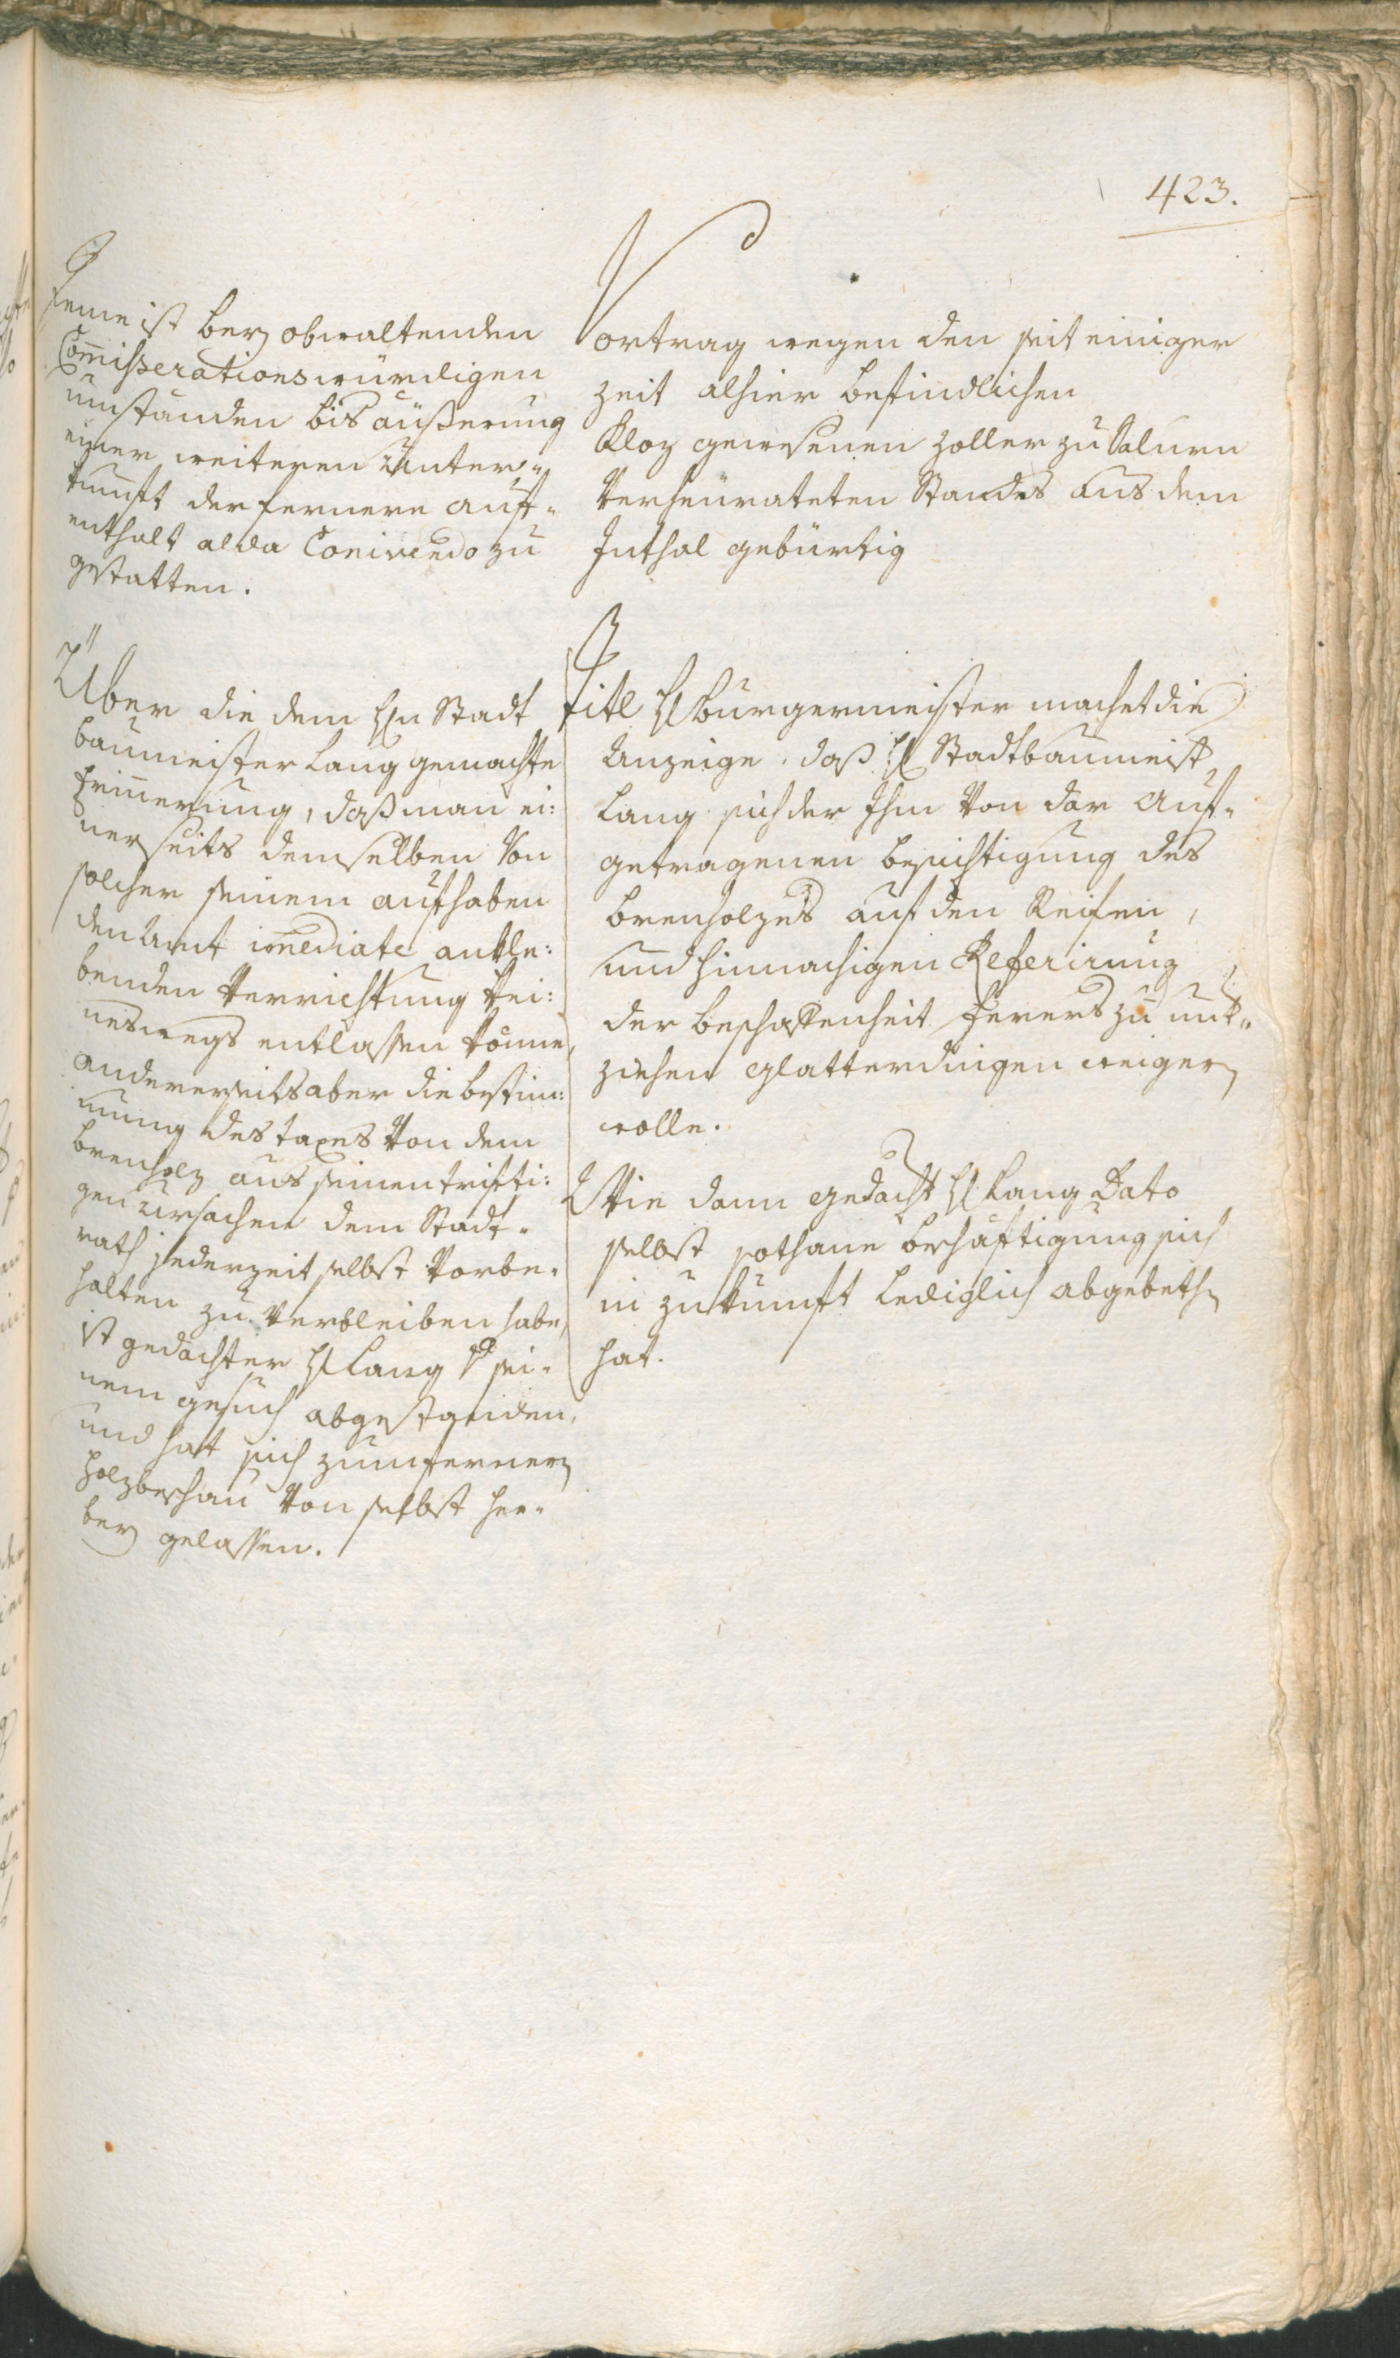 423.
Jenne ist bey obwaltenden
Commißerationswürdigen
umständen bis äußerung
einer weiteren Unter-
kunft der fernere auf-
enthalt alda Conivendo zu
gestatten.
Vortrag wegen den seit einiger
zeit alhier befindlichen
Kloz gewesenen Zoller zu Salurn
verheürateten Standes aus dem
Inthal gebürtig
Über die dem Hn Stadt
baumeister Lang gemachte
Erinnerung, daß man ei:
nerseits demselben von
solcher seinem aufhaben
den Amt imediate ankle:
benden Verrichtung kei:
neswegs entlassen könne,
andererseits aber die bestim:
mung des taxes von dem
brenholz aus seinen trifti:
gen ursachen dem Stadt-
rath jederzeit selbst vorbe-
halten zu verbleiben habe,
ist gedachter H Lang sei-
nem gesuch abgestanden,
und hat sich zum fernern
holzbeschau von selbst her-
bey gelassen.
Titl H Burgermeister machet die
Anzeige, daß H Stadtbaumeist
Lang sich der Ihm von dar auf-
getragenen besichtigung des
brenholzes auf den Reifen,
und hinnachigen Referirung
der beschaffenheit ferers zu unt-
ziehen glatterdingen weigern
wolle.
Wie dann gedacht H Lang Dato
selbst sothane beschäftigung sich
in zukunft lediglich abgebethen
hat.